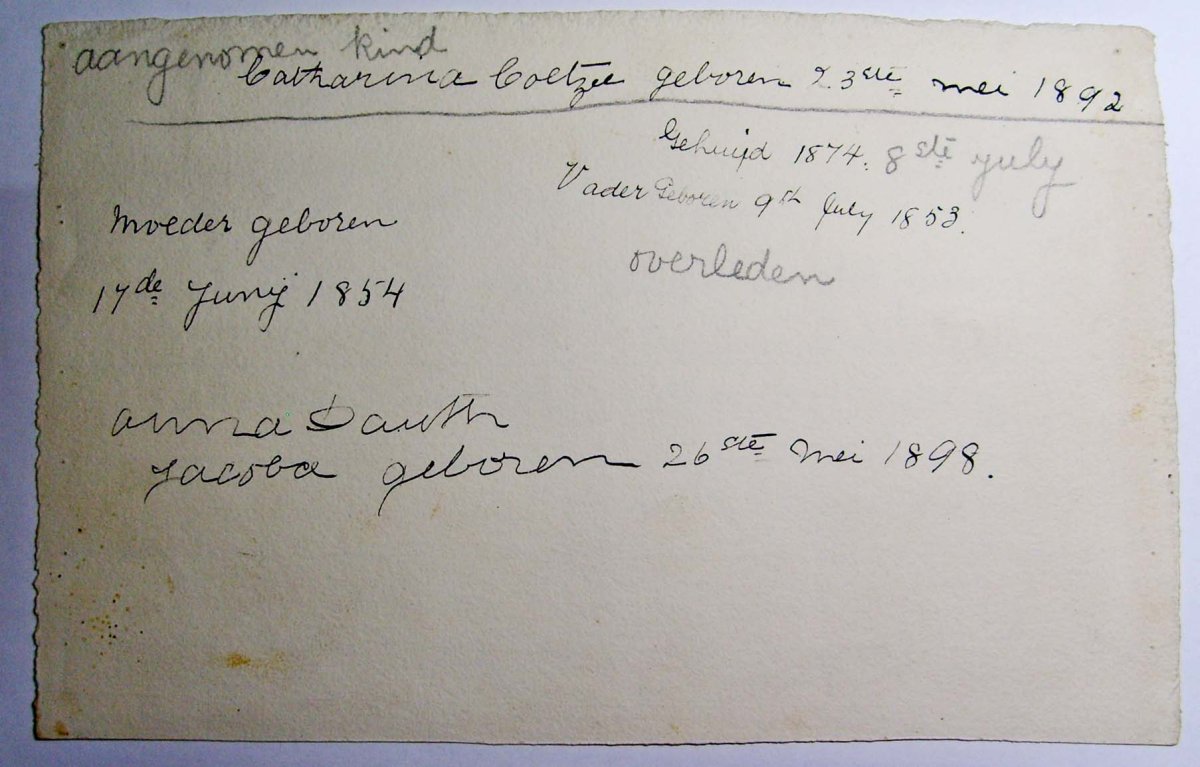 aangenomen kind
Catharina Coetzee geboren 23ste mei 1892
Gehuijd 1874. 8ste July
Vader Geboren 9th July 1853.
overleden
Moeder geboren
17de Junij 1854
anna Dauth
Jacoba geboren 26ste Mei 1898.